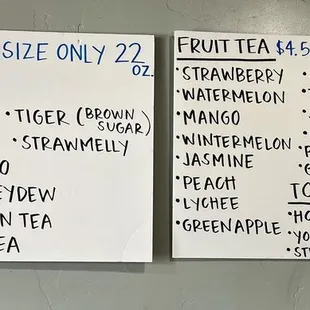 SIZE ONLY 22 OZ.
• TIGER (BROWN SUGAR)
• STRAWMELLY
TEA
FRUIT TEA $4.5
• STRAWBERRY
• WATERMELON
• MANGO
• WINTERMELON
• JASMINE
• PEACH
• LYCHEE
• GREEN APPLE